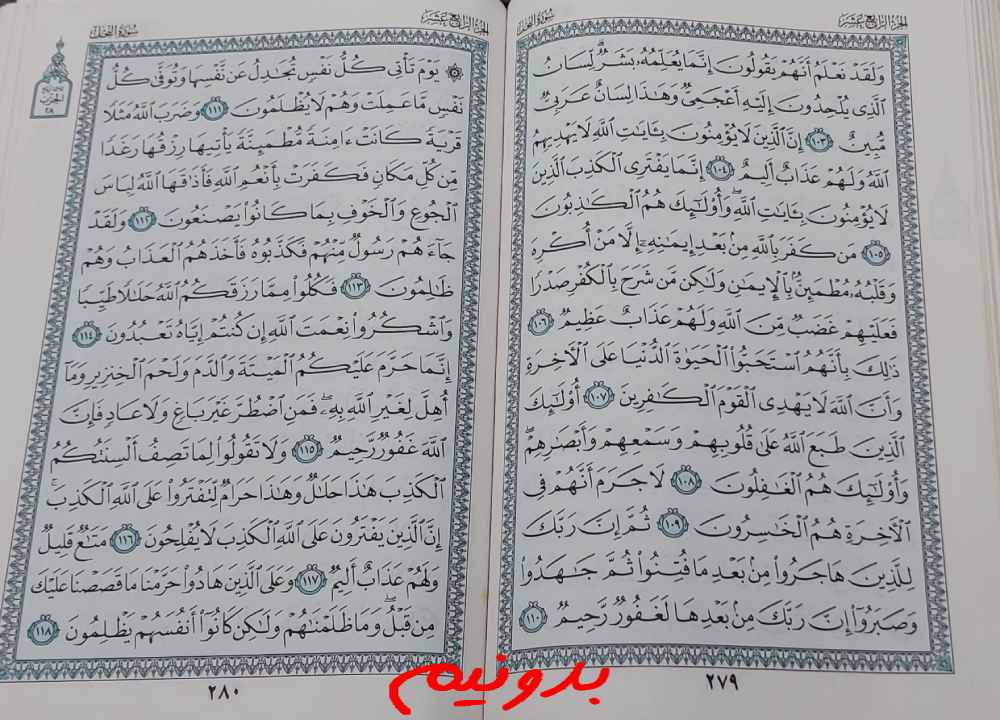 الجزء الرابع عشر
سورة النحل
وَلَقَدْ نَعْلَمُ أَنَّهُمْ يَقُولُونَ إِنَّمَا يُعَلِّمُهُۥ بَشَرٌ ۗ لِّسَانُ
ٱلَّذِى يُلْحِدُونَ إِلَيْهِ أَعْجَمِىٌّ وَهَٰذَا لِسَانٌ عَرَبِىٌّ
مُّبِينٌ ١٠٣ إِنَّ ٱلَّذِينَ لَا يُؤْمِنُونَ بِـَٔايَٰتِ ٱللَّهِ لَا يَهْدِيهِمُ
ٱللَّهُ وَلَهُمْ عَذَابٌ أَلِيمٌ ١٠٤ إِنَّمَا يَفْتَرِى ٱلْكَذِبَ ٱلَّذِينَ
لَا يُؤْمِنُونَ بِـَٔايَٰتِ ٱللَّهِ ۖ وَأُو۟لَٰٓئِكَ هُمُ ٱلْكَٰذِبُونَ
١٠٥ مَن كَفَرَ بِٱللَّهِ مِنۢ بَعْدِ إِيمَٰنِهِۦٓ إِلَّا مَنْ أُكْرِهَ
وَقَلْبُهُۥ مُطْمَئِنٌّۢ بِٱلْإِيمَٰنِ وَلَٰكِن مَّن شَرَحَ بِٱلْكُفْرِ صَدْرًا
فَعَلَيْهِمْ غَضَبٌ مِّنَ ٱللَّهِ وَلَهُمْ عَذَابٌ عَظِيمٌ ١٠٦
ذَٰلِكَ بِأَنَّهُمُ ٱسْتَحَبُّوا۟ ٱلْحَيَوٰةَ ٱلدُّنْيَا عَلَى ٱلْءَاخِرَةِ
وَأَنَّ ٱللَّهَ لَا يَهْدِى ٱلْقَوْمَ ٱلْكَٰفِرِينَ ١٠٧ أُو۟لَٰٓئِكَ
ٱلَّذِينَ طَبَعَ ٱللَّهُ عَلَىٰ قُلُوبِهِمْ وَسَمْعِهِمْ وَأَبْصَٰرِهِمْ ۖ
وَأُو۟لَٰٓئِكَ هُمُ ٱلْغَٰفِلُونَ ١٠٨ لَا جَرَمَ أَنَّهُمْ فِى
ٱلْءَاخِرَةِ هُمُ ٱلْخَٰسِرُونَ ١٠٩ ثُمَّ إِنَّ رَبَّكَ
لِلَّذِينَ هَاجَرُوا۟ مِنۢ بَعْدِ مَا فُتِنُوا۟ ثُمَّ جَٰهَدُوا۟
وَصَبَرُوٓا۟ إِنَّ رَبَّكَ مِنۢ بَعْدِهَا لَغَفُورٌ رَّحِيمٌ ١١٠
٢٧٩
الجزء الرابع عشر
سورة النحل
۞ يَوْمَ تَأْتِى كُلُّ نَفْسٍ تُجَٰدِلُ عَن نَّفْسِهَا وَتُوَفَّىٰ كُلُّ
نَفْسٍ مَّا عَمِلَتْ وَهُمْ لَا يُظْلَمُونَ ١١١ وَضَرَبَ ٱللَّهُ مَثَلًا
قَرْيَةً كَانَتْ ءَامِنَةً مُّطْمَئِنَّةً يَأْتِيهَا رِزْقُهَا رَغَدًا
مِّن كُلِّ مَكَانٍ فَكَفَرَتْ بِأَنْعُمِ ٱللَّهِ فَأَذَٰقَهَا ٱللَّهُ لِبَاسَ
ٱلْجُوعِ وَٱلْخَوْفِ بِمَا كَانُوا۟ يَصْنَعُونَ ١١٢ وَلَقَدْ
جَآءَهُمْ رَسُولٌ مِّنْهُمْ فَكَذَّبُوهُ فَأَخَذَهُمُ ٱلْعَذَابُ وَهُمْ
ظَٰلِمُونَ ١١٣ فَكُلُوا۟ مِمَّا رَزَقَكُمُ ٱللَّهُ حَلَٰلًا طَيِّبًا
وَٱشْكُرُوا۟ نِعْمَتَ ٱللَّهِ إِن كُنتُمْ إِيَّاهُ تَعْبُدُونَ ١١٤
إِنَّمَا حَرَّمَ عَلَيْكُمُ ٱلْمَيْتَةَ وَٱلدَّمَ وَلَحْمَ ٱلْخِنزِيرِ وَمَآ
أُهِلَّ لِغَيْرِ ٱللَّهِ بِهِۦ ۖ فَمَنِ ٱضْطُرَّ غَيْرَ بَاغٍ وَلَا عَادٍ فَإِنَّ
ٱللَّهَ غَفُورٌ رَّحِيمٌ ١١٥ وَلَا تَقُولُوا۟ لِمَا تَصِفُ أَلْسِنَتُكُمُ
ٱلْكَذِبَ هَٰذَا حَلَٰلٌ وَهَٰذَا حَرَامٌ لِّتَفْتَرُوا۟ عَلَى ٱللَّهِ ٱلْكَذِبَ ۚ
إِنَّ ٱلَّذِينَ يَفْتَرُونَ عَلَى ٱللَّهِ ٱلْكَذِبَ لَا يُفْلِحُونَ ١١٦ مَتَٰعٌ قَلِيلٌ
وَلَهُمْ عَذَابٌ أَلِيمٌ ١١٧ وَعَلَى ٱلَّذِينَ هَادُوا۟ حَرَّمْنَا مَا قَصَصْنَا عَلَيْكَ
مِن قَبْلُ ۖ وَمَا ظَلَمْنَٰهُمْ وَلَٰكِن كَانُوٓا۟ أَنفُسَهُمْ يَظْلِمُونَ ١١٨
٢٨٠
الحزب
٢٨
بدونيم